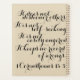 It does not
dishonor others
it is not self-seeking
it is not easily angered
it keeps no record
of wrongs
1 Corinthians 13:5